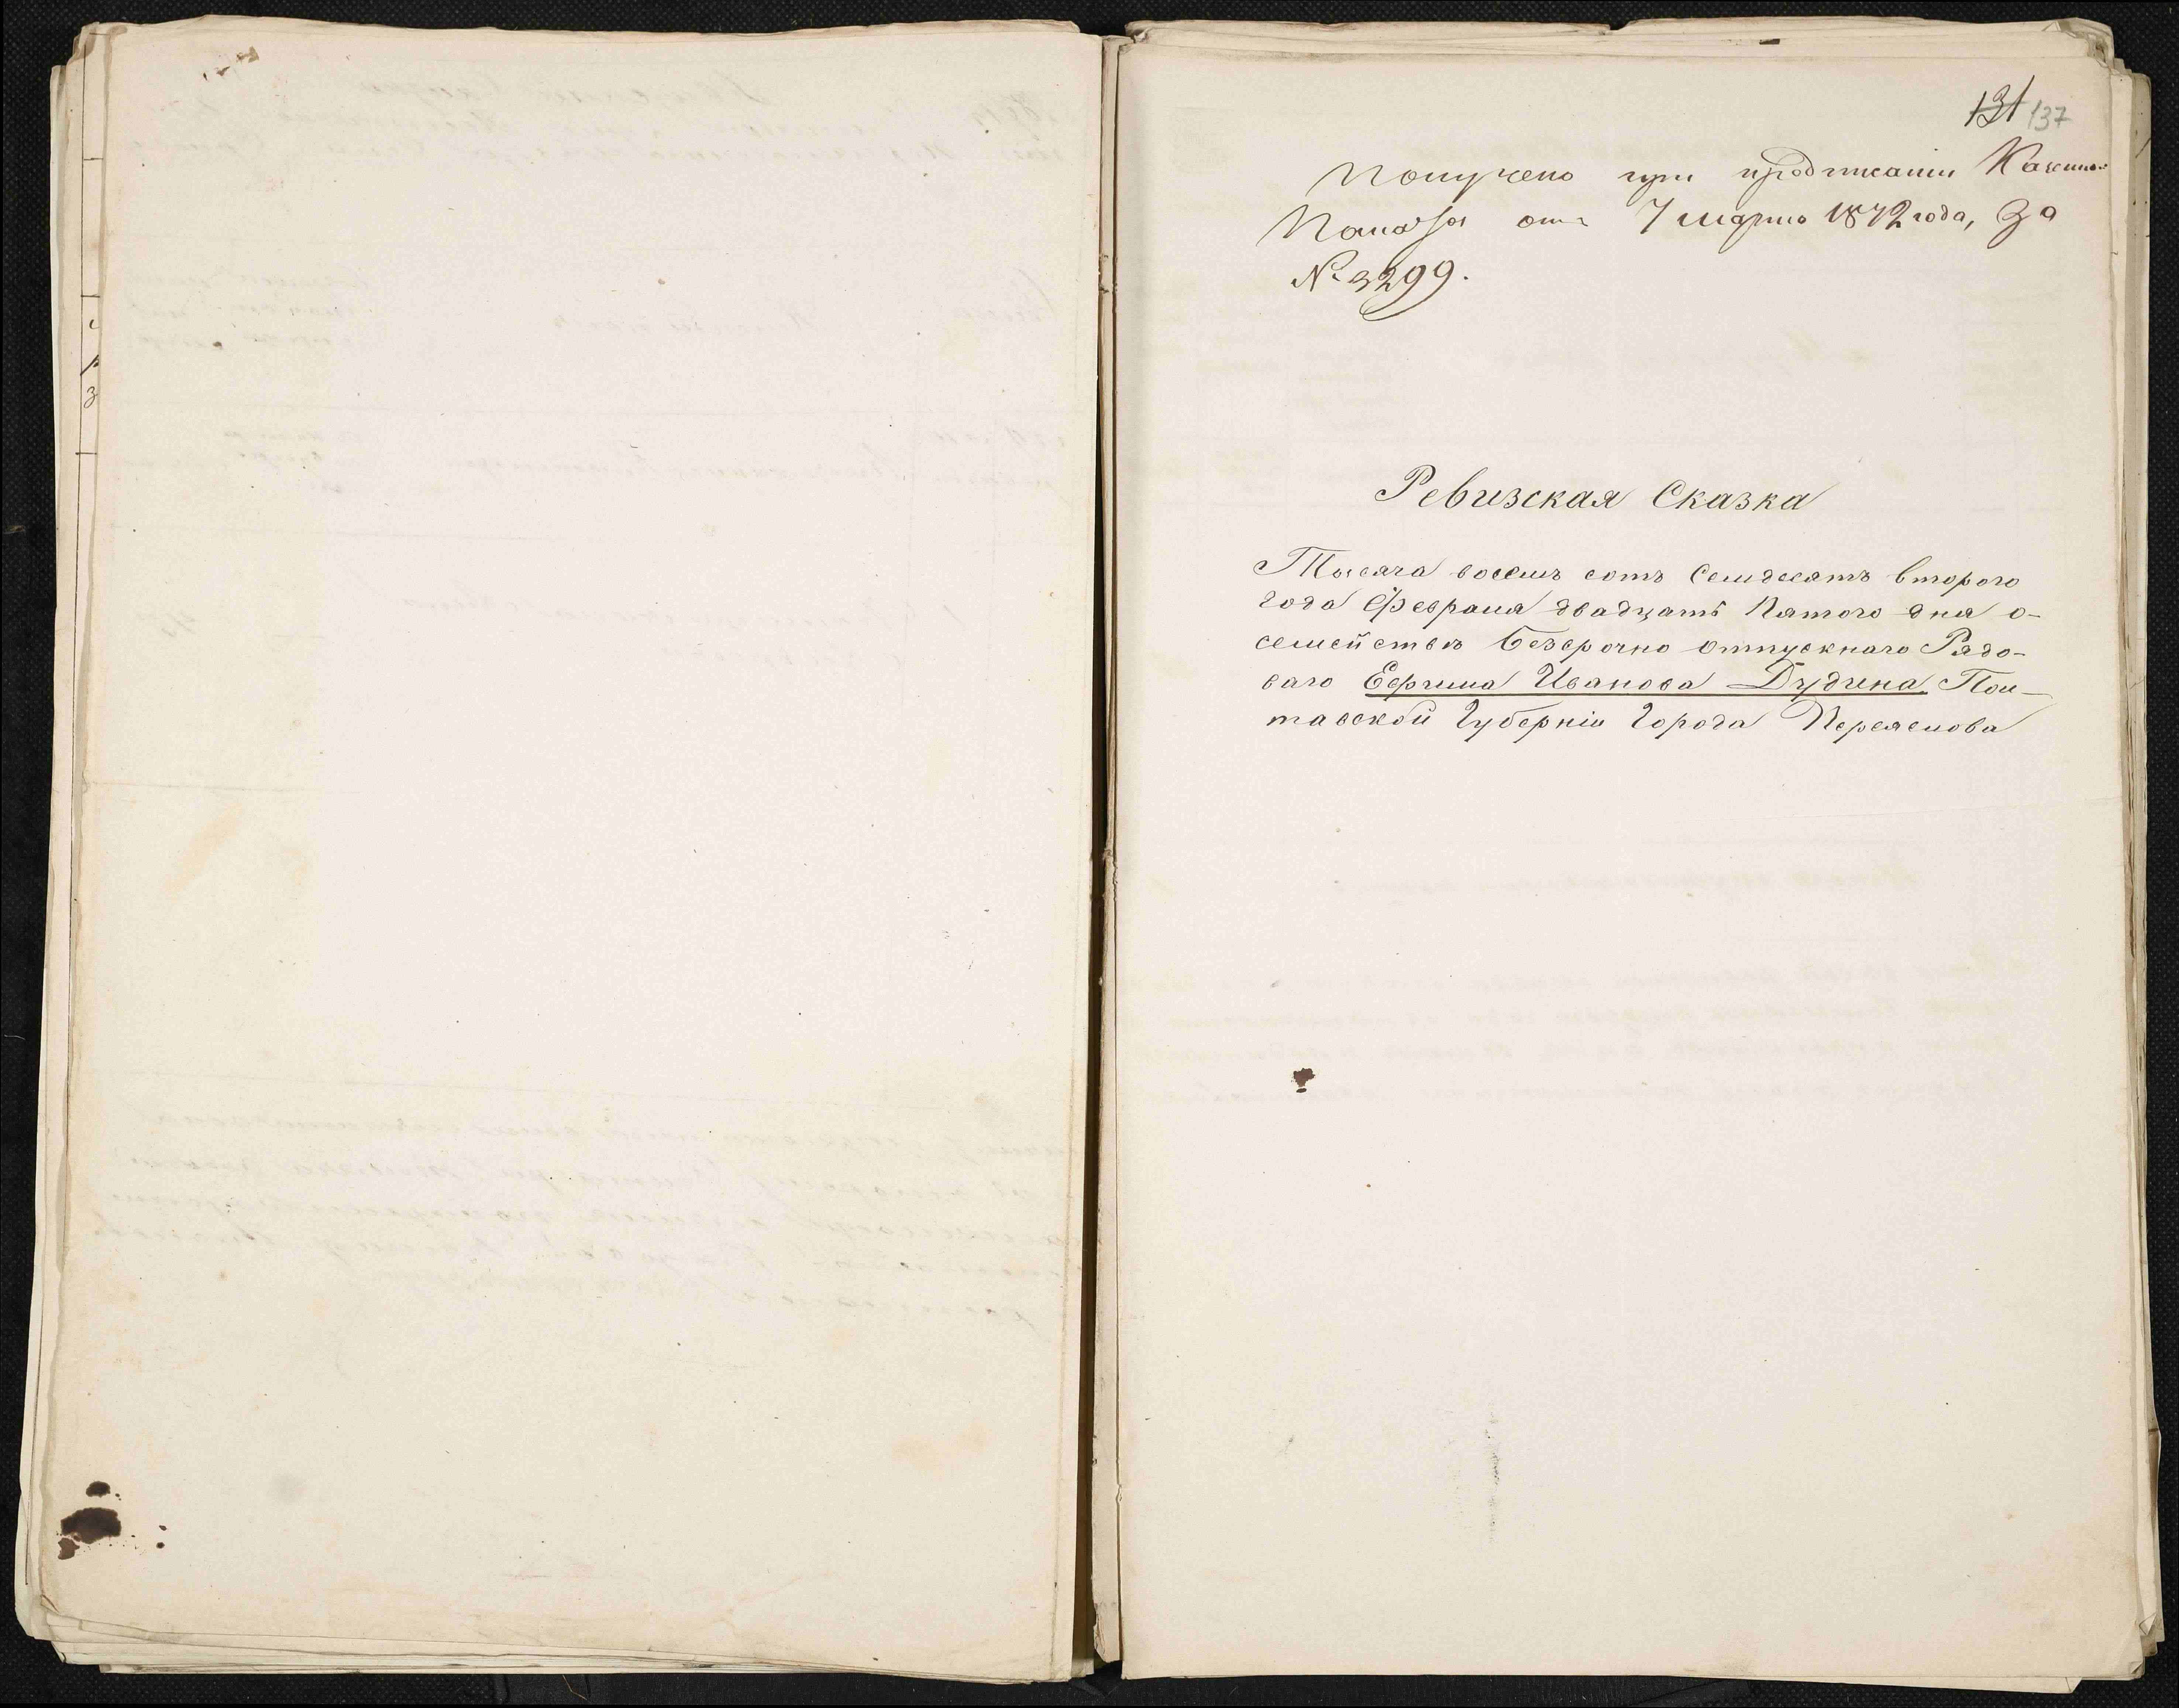 131 137
Получено при предписаніи Казенной
Палаты отъ 7 марта 1872 года, за
№ 3299.
Ревизская Сказка
Тысяча восемь сотъ семдесятъ втораго
года Февраля двадцать пятого дня о-
семействѣ безсрочно отпускнаго Рядо-
ваго Ефима Иванова Дудина Пол-
тавской Губерніи Города Переяслова